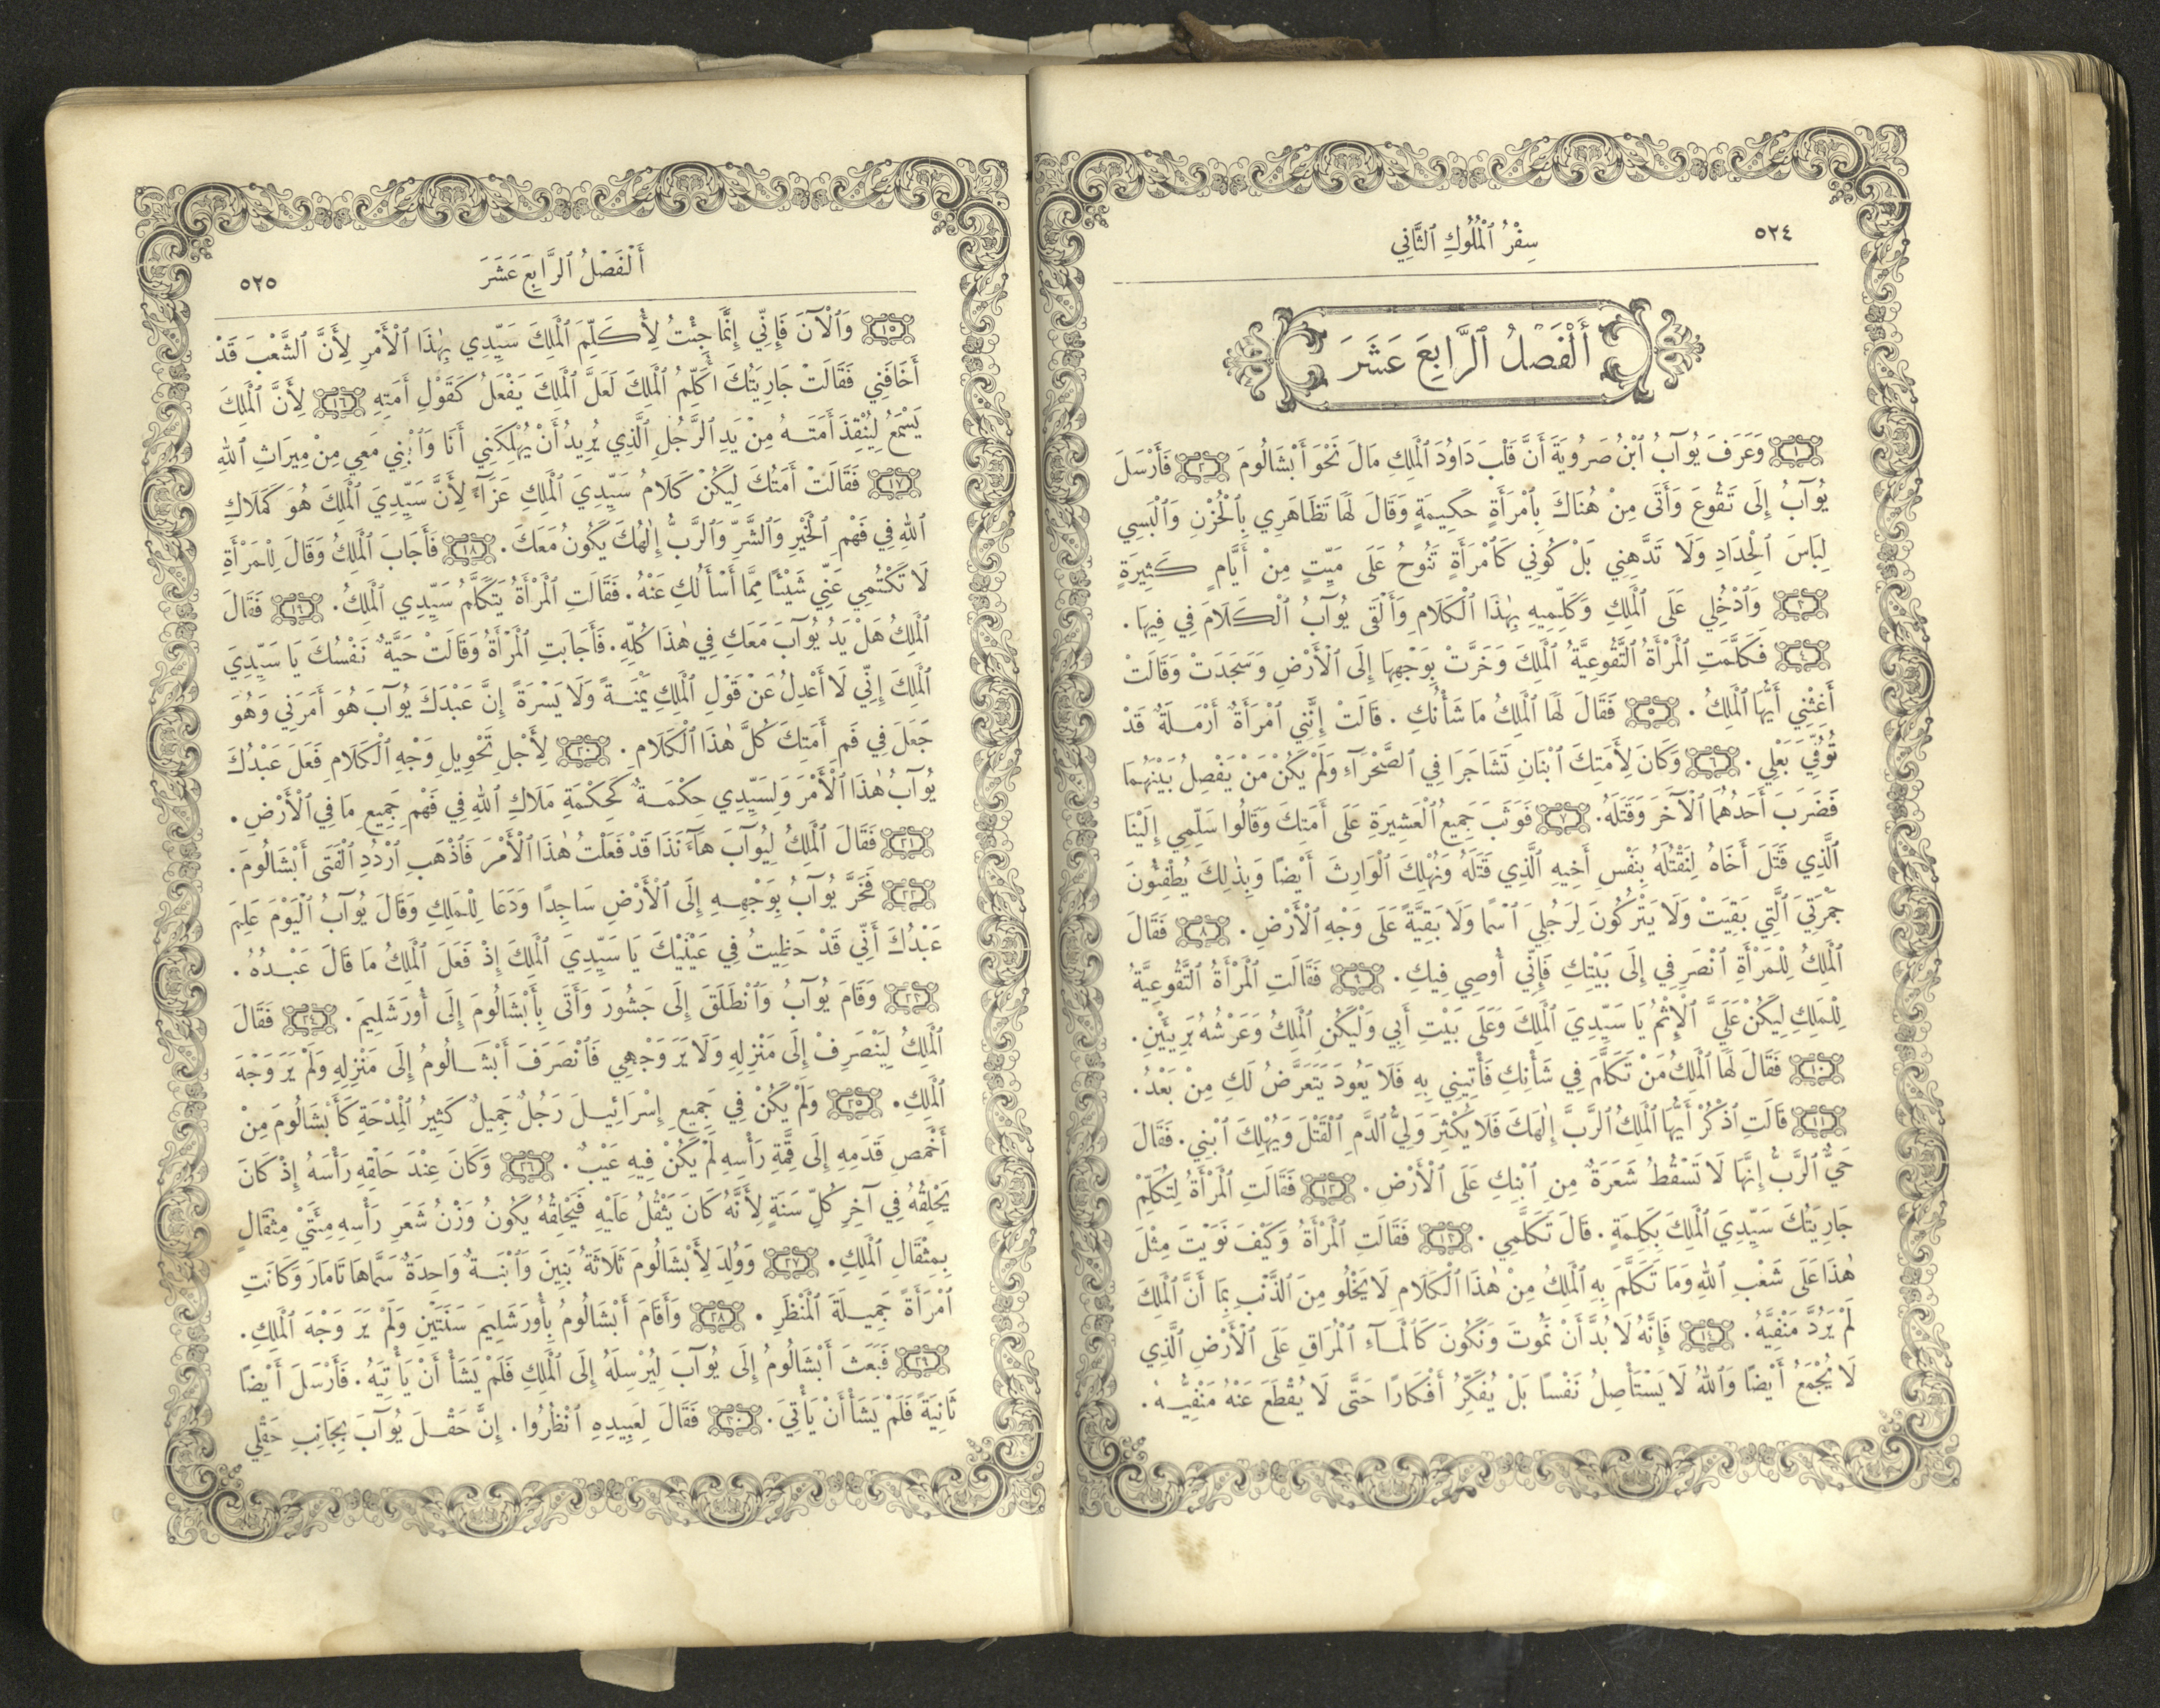 ٥٢٤
سِفْرُ ٱلْمُلُوكِ ٱلثَّانِي
أَلْفَصْلُ ٱلرَّابِعَ عَشَرَ
١ وَعَرَفَ يُوآبُ ٱبْنُ صَرُويَةَ أَنَّ قَلْبَ دَاوُدَ ٱلْمَلِكِ مَالَ نَحْوَ أَبْشَالُومَ ٢ فَأَرْسَلَ
يُوآبُ إِلَى تَقُوعَ وَأَتَى مِنْ هُنَاكَ بِٱمْرَأَةٍ حَكِيمَةٍ وَقَالَ لَهَا تَظَاهَرِي بِٱلْحُزْنِ وَٱلْبَسِي
لِبَاسَ ٱلْحِدَادِ وَلَا تَدَّهِنِي بَلْ كُونِي كَٱمْرَأَةٍ تَنُوحُ عَلَى مَيِّتٍ مِنْ أَيَّامٍ كَثِيرَةٍ
٣ وَٱدْخُلِي عَلَى ٱلْمَلِكِ وَكَلِّمِيهِ بِهٰذَا ٱلْكَلَامِ وَأَلْقَى يُوآبُ ٱلْكَلَامَ فِي فِيهَا.
٤ فَكَلَّمَتِ ٱلْمَرْأَةُ ٱلتَّقُوعِيَّةُ ٱلْمَلِكَ وَخَرَّتْ بِوَجْهِهَا إِلَى ٱلْأَرْضِ وَسَجَدَتْ وَقَالَتْ
أَغِثْنِي أَيُّهَا ٱلْمَلِكُ. ٥ فَقَالَ لَهَا ٱلْمَلِكُ مَا شَأْنُكِ. قَالَتْ إِنَّنِي ٱمْرَأَةٌ أَرْمَلَةٌ قَدْ
تُوُفِّيَ بَعْلِي. ٦ وَكَانَ لِأَمَتِكَ ٱبْنَانِ تَشَاجَرَا فِي ٱلصَّحْرَآءِ وَلَمْ يَكُنْ مَنْ يَفْصِلُ بَيْنَهُمَا
فَضَرَبَ أَحَدُهُمَا ٱلْآخَرَ وَقَتَلَهُ. ٧ فَوَثَبَ جَمِيعُ ٱلْعَشِيرَةِ عَلَى أَمَتِكَ وَقَالُوا سَلِّمِي إِلَيْنَا
ٱلَّذِي قَتَلَ أَخَاهُ لِنَقْتُلَهُ بِنَفْسِ أَخِيهِ ٱلَّذِي قَتَلَهُ وَنُهْلِكَ ٱلْوَارِثَ أَيْضًا وَبِذٰلِكَ يُطْفِئُونَ
جَمْرَتِيَ ٱلَّتِي بَقِيَتْ وَلَا يَتْرُكُونَ لِرَجُلِيَ ٱسْمًا وَلَا بَقِيَّةً عَلَى وَجْهِ ٱلْأَرْضِ. ٨ فَقَالَ
ٱلْمَلِكُ لِلْمَرْأَةِ ٱنْصَرِفِي إِلَى بَيْتِكِ فَإِنِّي أُوصِي فِيكِ. ٩ فَقَالَتِ ٱلْمَرْأَةُ ٱلتَّقُوعِيَّةُ
لِلْمَلِكِ لِيَكُنْ عَلَيَّ ٱلْإِثْمُ يَا سَيِّدِيَ ٱلْمَلِكَ وَعَلَى بَيْتِ أَبِي وَلْيَكُنِ ٱلْمَلِكُ وَعَرْشُهُ بَرِيئَيْنِ.
١٠ فَقَالَ لَهَا ٱلْمَلِكُ مَنْ تَكَلَّمَ فِي شَأْنِكِ فَأْتِينِي بِهِ فَلَا يَعُودَ يَتَعَرَّضُ لَكِ مِنْ بَعْدُ.
١١ قَالَتِ ٱذْكُرْ أَيُّهَا ٱلْمَلِكُ ٱلرَّبَّ إِلٰهَكَ فَلَا يُكْثِرَ وَلِيُّ ٱلدَّمِ ٱلْقَتْلَ وَيُهْلِكَ ٱبْنِي. فَقَالَ
حَيٌّ ٱلرَّبُّ إِنَّهَا لَا تَسْقُطُ شَعَرَةٌ مِنِ ٱبْنِكِ عَلَى ٱلْأَرْضِ. ١٢ فَقَالَتِ ٱلْمَرْأَةُ لِتُكَلِّمْ
جَارِيَتُكَ سَيِّدِيَ ٱلْمَلِكَ بِكَلِمَةٍ. قَالَ تَكَلَّمِي. ١٣ فَقَالَتِ ٱلْمَرْأَةُ وَكَيْفَ نَوَيْتَ مِثْلَ
هٰذَا عَلَى شَعْبِ ٱللهِ وَمَا تَكَلَّمَ بِهِ ٱلْمَلِكُ مِنْ هٰذَا ٱلْكَلَامِ لَا يَخْلُو مِنَ ٱلذَّنْبِ بِمَا أَنَّ ٱلْمَلِكَ
لَمْ يَرُدَّ مَنْفِيَّهُ. ١٤ فَإِنَّهُ لَا بُدَّ أَنْ نَمُوتَ وَنَكُونَ كَٱلْمَآءِ ٱلْمُرَاقِ عَلَى ٱلْأَرْضِ ٱلَّذِي
لَا يُجْمَعُ أَيْضًا وَٱللهُ لَا يَسْتَأْصِلُ نَفْسًا بَلْ يُفَكِّرُ أَفْكَارًا حَتَّى لَا يُقْطَعَ عَنْهُ مَنْفِيُّهُ.
أَلْفَصْلُ ٱلرَّابِعَ عَشَرَ
٥٢٥
١٥ وَٱلْآنَ فَإِنِّي إِنَّمَا جِئْتُ لِأُكَلِّمَ ٱلْمَلِكَ سَيِّدِي بِهٰذَا ٱلْأَمْرِ لِأَنَّ ٱلشَّعْبَ قَدْ
أَخَافَنِي فَقَالَتْ جَارِيَتُكَ أُكَلِّمُ ٱلْمَلِكَ لَعَلَّ ٱلْمَلِكَ يَفْعَلُ كَقَوْلِ أَمَتِهِ ١٦ لِأَنَّ ٱلْمَلِكَ
يَسْمَعُ لِيُنْقِذَ أَمَتَهُ مِنْ يَدِ ٱلرَّجُلِ ٱلَّذِي يُرِيدُ أَنْ يُهْلِكَنِي أَنَا وَٱبْنِي مَعِي مِنْ مِيرَاثِ ٱللهِ
١٧ فَقَالَتْ أَمَتُكَ لِيَكُنْ كَلَامُ سَيِّدِيَ ٱلْمَلِكِ عَزَآءً لِأَنَّ سَيِّدِيَ ٱلْمَلِكَ هُوَ كَمَلَاكِ
ٱللهِ فِي فَهْمِ ٱلْخَيْرِ وَٱلشَّرِّ وَٱلرَّبُّ إِلٰهُكَ يَكُونُ مَعَكَ. ١٨ فَأَجَابَ ٱلْمَلِكُ وَقَالَ لِلْمَرْأَةِ
لَا تَكْتُمِي عَنِّي شَيْئًا مِمَّا أَسْأَلُكِ عَنْهُ. فَقَالَتِ ٱلْمَرْأَةُ يَتَكَلَّمُ سَيِّدِي ٱلْمَلِكُ. ١٩ فَقَالَ
ٱلْمَلِكُ هَلْ يَدُ يُوآبَ مَعَكِ فِي هٰذَا كُلِّهِ. فَأَجَابَتِ ٱلْمَرْأَةُ وَقَالَتْ حَيَّةٌ نَفْسُكَ يَا سَيِّدِيَ
ٱلْمَلِكَ إِنِّي لَا أَعْدِلُ عَنْ قَوْلِ ٱلْمَلِكِ يَمْنَةً وَلَا يَسْرَةً إِنَّ عَبْدَكَ يُوآبَ هُوَ أَمَرَنِي وَهُوَ
جَعَلَ فِي فَمِ أَمَتِكَ كُلَّ هٰذَا ٱلْكَلَامِ. ٢٠ لِأَجْلِ تَحْوِيلِ وَجْهِ ٱلْكَلَامِ فَعَلَ عَبْدُكَ
يُوآبُ هٰذَا ٱلْأَمْرَ وَلِسَيِّدِي حِكْمَةٌ كَحِكْمَةِ مَلَاكِ ٱللهِ فِي فَهْمِ جَمِيعِ مَا فِي ٱلْأَرْضِ.
٢١ فَقَالَ ٱلْمَلِكُ لِيُوآبَ هَآءَنَذَا قَدْ فَعَلْتُ هٰذَا ٱلْأَمْرَ فَٱذْهَبِ ٱرْدُدِ ٱلْفَتَى أَبْشَالُومَ.
٢٢ فَخَرَّ يُوآبُ بِوَجْهِهِ إِلَى ٱلْأَرْضِ سَاجِدًا وَدَعَا لِلْمَلِكِ وَقَالَ يُوآبُ ٱلْيَوْمَ عَلِمَ
عَبْدُكَ أَنِّي قَدْ حَظِيتُ فِي عَيْنَيْكَ يَا سَيِّدِيَ ٱلْمَلِكَ إِذْ فَعَلَ ٱلْمَلِكُ مَا قَالَ عَبْدُهُ.
٢٣ وَقَامَ يُوآبُ وَٱنْطَلَقَ إِلَى جَشُورَ وَأَتَى بِأَبْشَالُومَ إِلَى أُورَشَلِيمَ. ٢٤ فَقَالَ
ٱلْمَلِكُ لِيَنْصَرِفْ إِلَى مَنْزِلِهِ وَلَا يَرَ وَجْهِي فَٱنْصَرَفَ أَبْشَالُومُ إِلَى مَنْزِلِهِ وَلَمْ يَرَ وَجْهَ
ٱلْمَلِكِ. ٢٥ وَلَمْ يَكُنْ فِي جَمِيعِ إِسْرَائِيلَ رَجُلٌ جَمِيلٌ كَثِيرُ ٱلْمِدْحَةِ كَأَبْشَالُومَ مِنْ
أَخْمَصِ قَدَمِهِ إِلَى قِمَّةِ رَأْسِهِ لَمْ يَكُنْ فِيهِ عَيْبٌ. ٢٦ وَكَانَ عِنْدَ حَلْقِهِ رَأْسَهُ إِذْ كَانَ
يَحْلِقُهُ فِي آخِرِ كُلِّ سَنَةٍ لِأَنَّهُ كَانَ يَثْقُلُ عَلَيْهِ فَيَحْلِقُهُ يَكُونُ وَزْنُ شَعَرِ رَأْسِهِ مِئَتَيْ مِثْقَالٍ
بِمِثْقَالِ ٱلْمَلِكِ. ٢٧ وَوُلِدَ لِأَبْشَالُومَ ثَلَاثَةُ بَنِينَ وَٱبْنَةٌ وَاحِدَةٌ سَمَّاهَا تَامَارَ وَكَانَتِ
ٱمْرَأَةً جَمِيلَةَ ٱلْمَنْظَرِ. ٢٨ وَأَقَامَ أَبْشَالُومُ بِأُورَشَلِيمَ سَنَتَيْنِ وَلَمْ يَرَ وَجْهَ ٱلْمَلِكِ.
٢٩ فَبَعَثَ أَبْشَالُومُ إِلَى يُوآبَ لِيُرْسِلَهُ إِلَى ٱلْمَلِكِ فَلَمْ يَشَأْ أَنْ يَأْتِيَهُ. فَأَرْسَلَ أَيْضًا
ثَانِيَةً فَلَمْ يَشَأْ أَنْ يَأْتِيَ. ٣٠ فَقَالَ لِعَبِيدِهِ ٱنْظُرُوا. إِنَّ حَقْلَ يُوآبَ بِجَانِبِ حَقْلِي